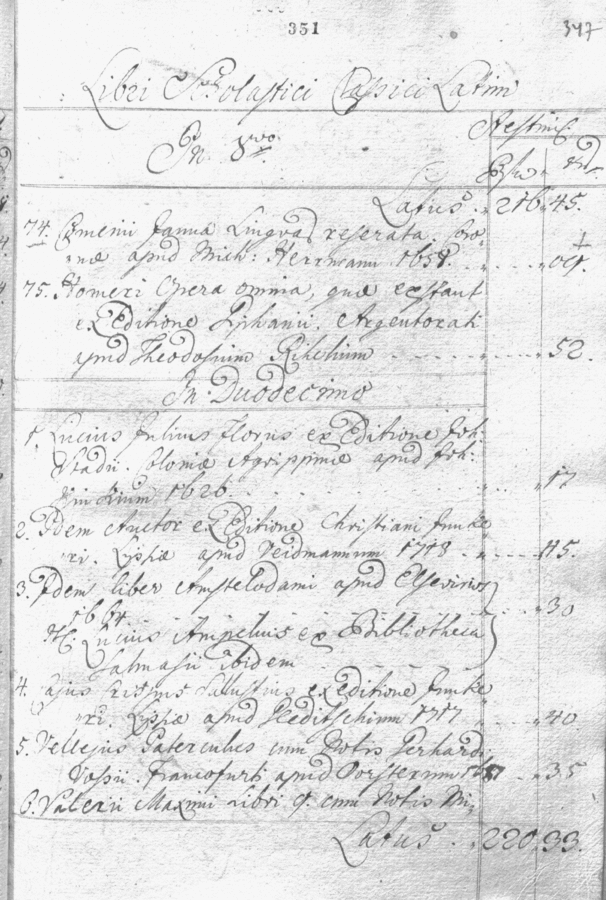 351
347
Libri Scholastici Classici Latini
In 8vo
Aestim.
Latus 216 45.
74. Comenii Janua Linguar reserata. Coro
nae apud Mich: Herrmann 1658. 09.
75. Homeri Opera omnia, quae exstant
ex Editione Giphanii. Argentorati
apud Theodosium Rihelium 52.
In Duodecimo
1. Lucius Julius Florus ex Editione Joh:
Stadii. Coloniae Agrippinae apud Joh:
1626. 17
2. Idem Auctor ex Editione Christiani Junke
ri. Lipsiae apud Veidmannum 1718 45.
3. Idem liber Amstelodami apud Elsevirios
1664. 30
It: Lucius Ampelius ex Bibliotheca
Salmasii ibidem
4. Cajus Crispus Salustius ex editione Junke
ri. Lipsiae apud Gleditschium 1717 40
5. Vellejus Paterculus cum Notis Gerhardi
Vossii. Francofurti apud 35
6. Valerii Maximi Libri 9. cum Notis Mi,
Latus 220 33.